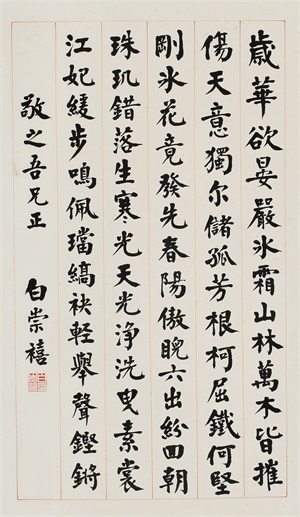 歲華欲晏嚴冰霜山林萬木皆摧
傷天意獨尔儲孤芳根柯屈鐵何堅
剛冰花竟發先春陽傲睨六出紛回朝
珠玑錯落生寒光天光浄洗曳素裳
江妃緩步鳴佩璫縞袂輕舉聲鏗鏘
敬之吾兄正 白崇禧